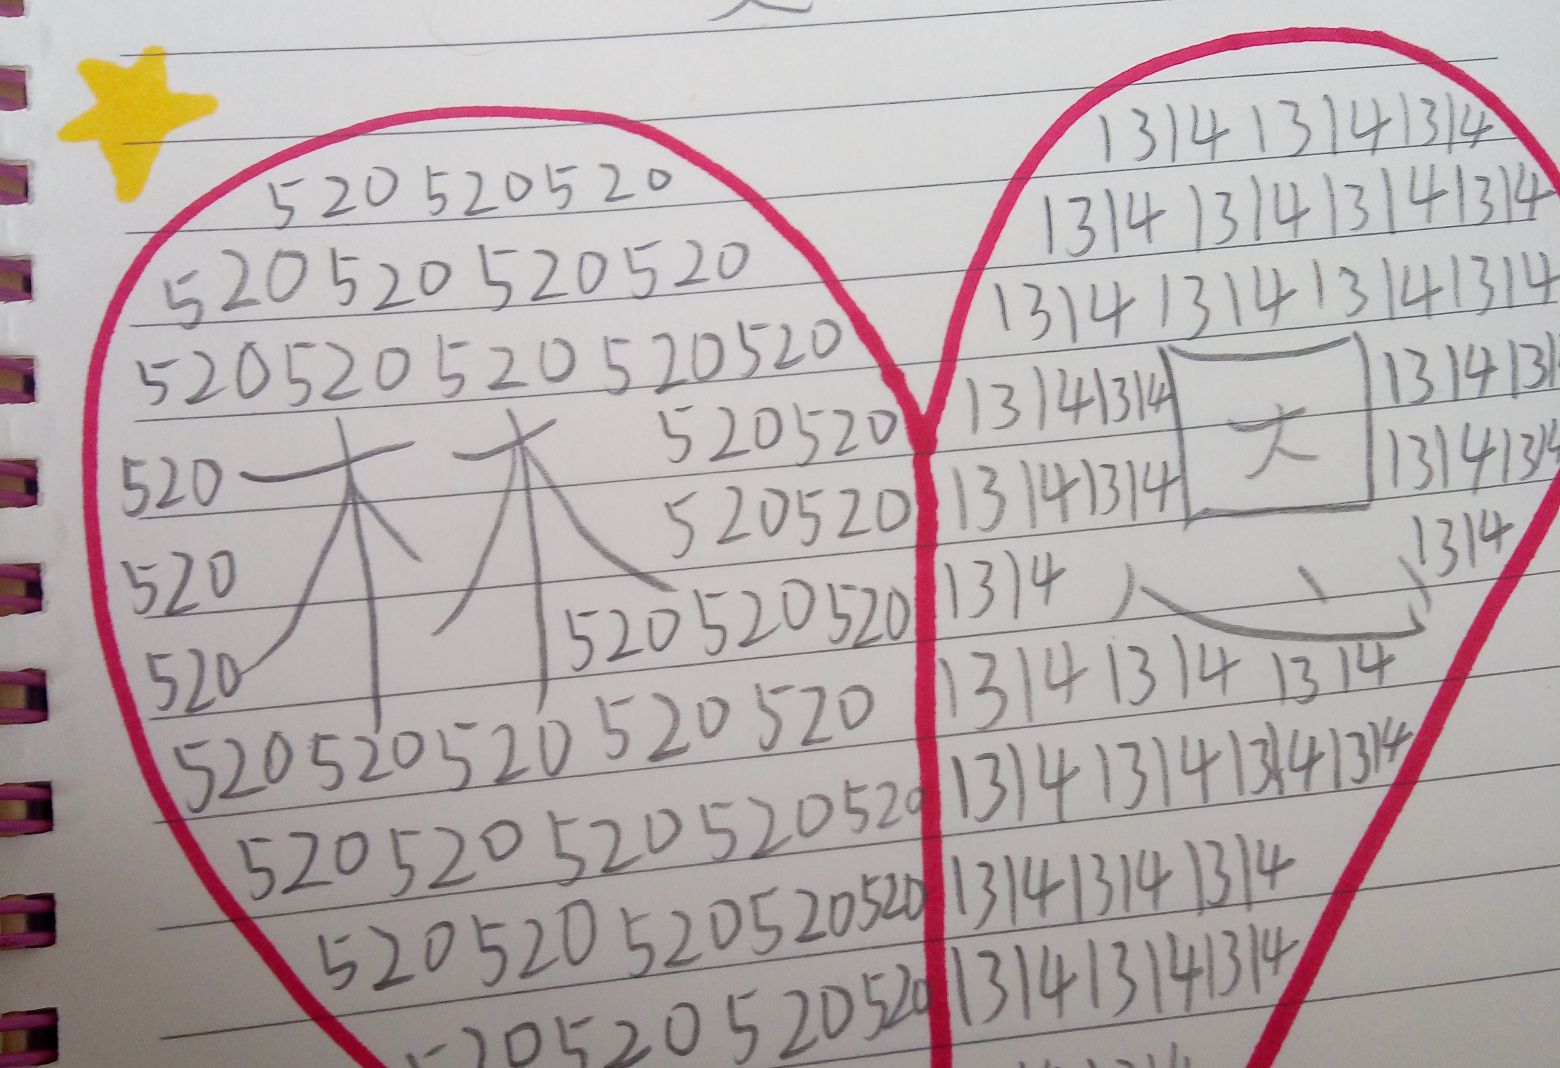 520 520 520
520 520 520 520
520 520 520 520 520
520 林 520 520
520 520 520
520 520 520 520
520 520 520 520 520
520 520 520 520 520
520 520 520 520 520
520 520 520 520
1314 1314 1314
1314 1314 1314 1314
1314 1314 1314 1314
1314 1314 恩 1314 131
1314 1314 1314 1314
1314 1314
1314 1314 1314
1314 1314 1314 1314
1314 1314 1314
1314 1314 1314